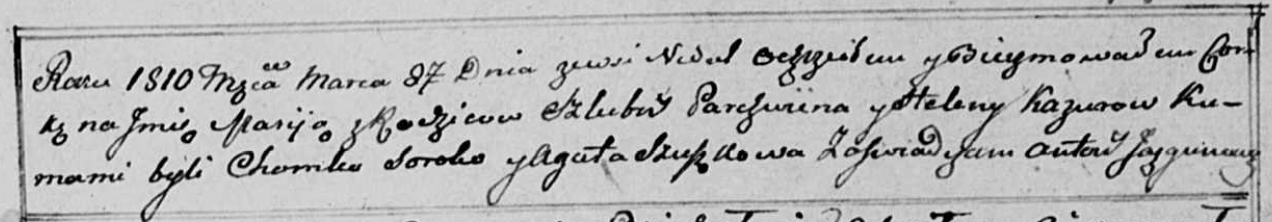 Roku 1810 Mzca Marca 27 Dnia zewsi Nidal ochrzciłem y Bierzmowałem Cor=
kę na Jmię Maryię z Rodzicow Szlubn Parchwiina y Heleny Kazurow Ku=
mami byli Chomko Soroko y Agata Szuszkowa Zaświadczam Antoni